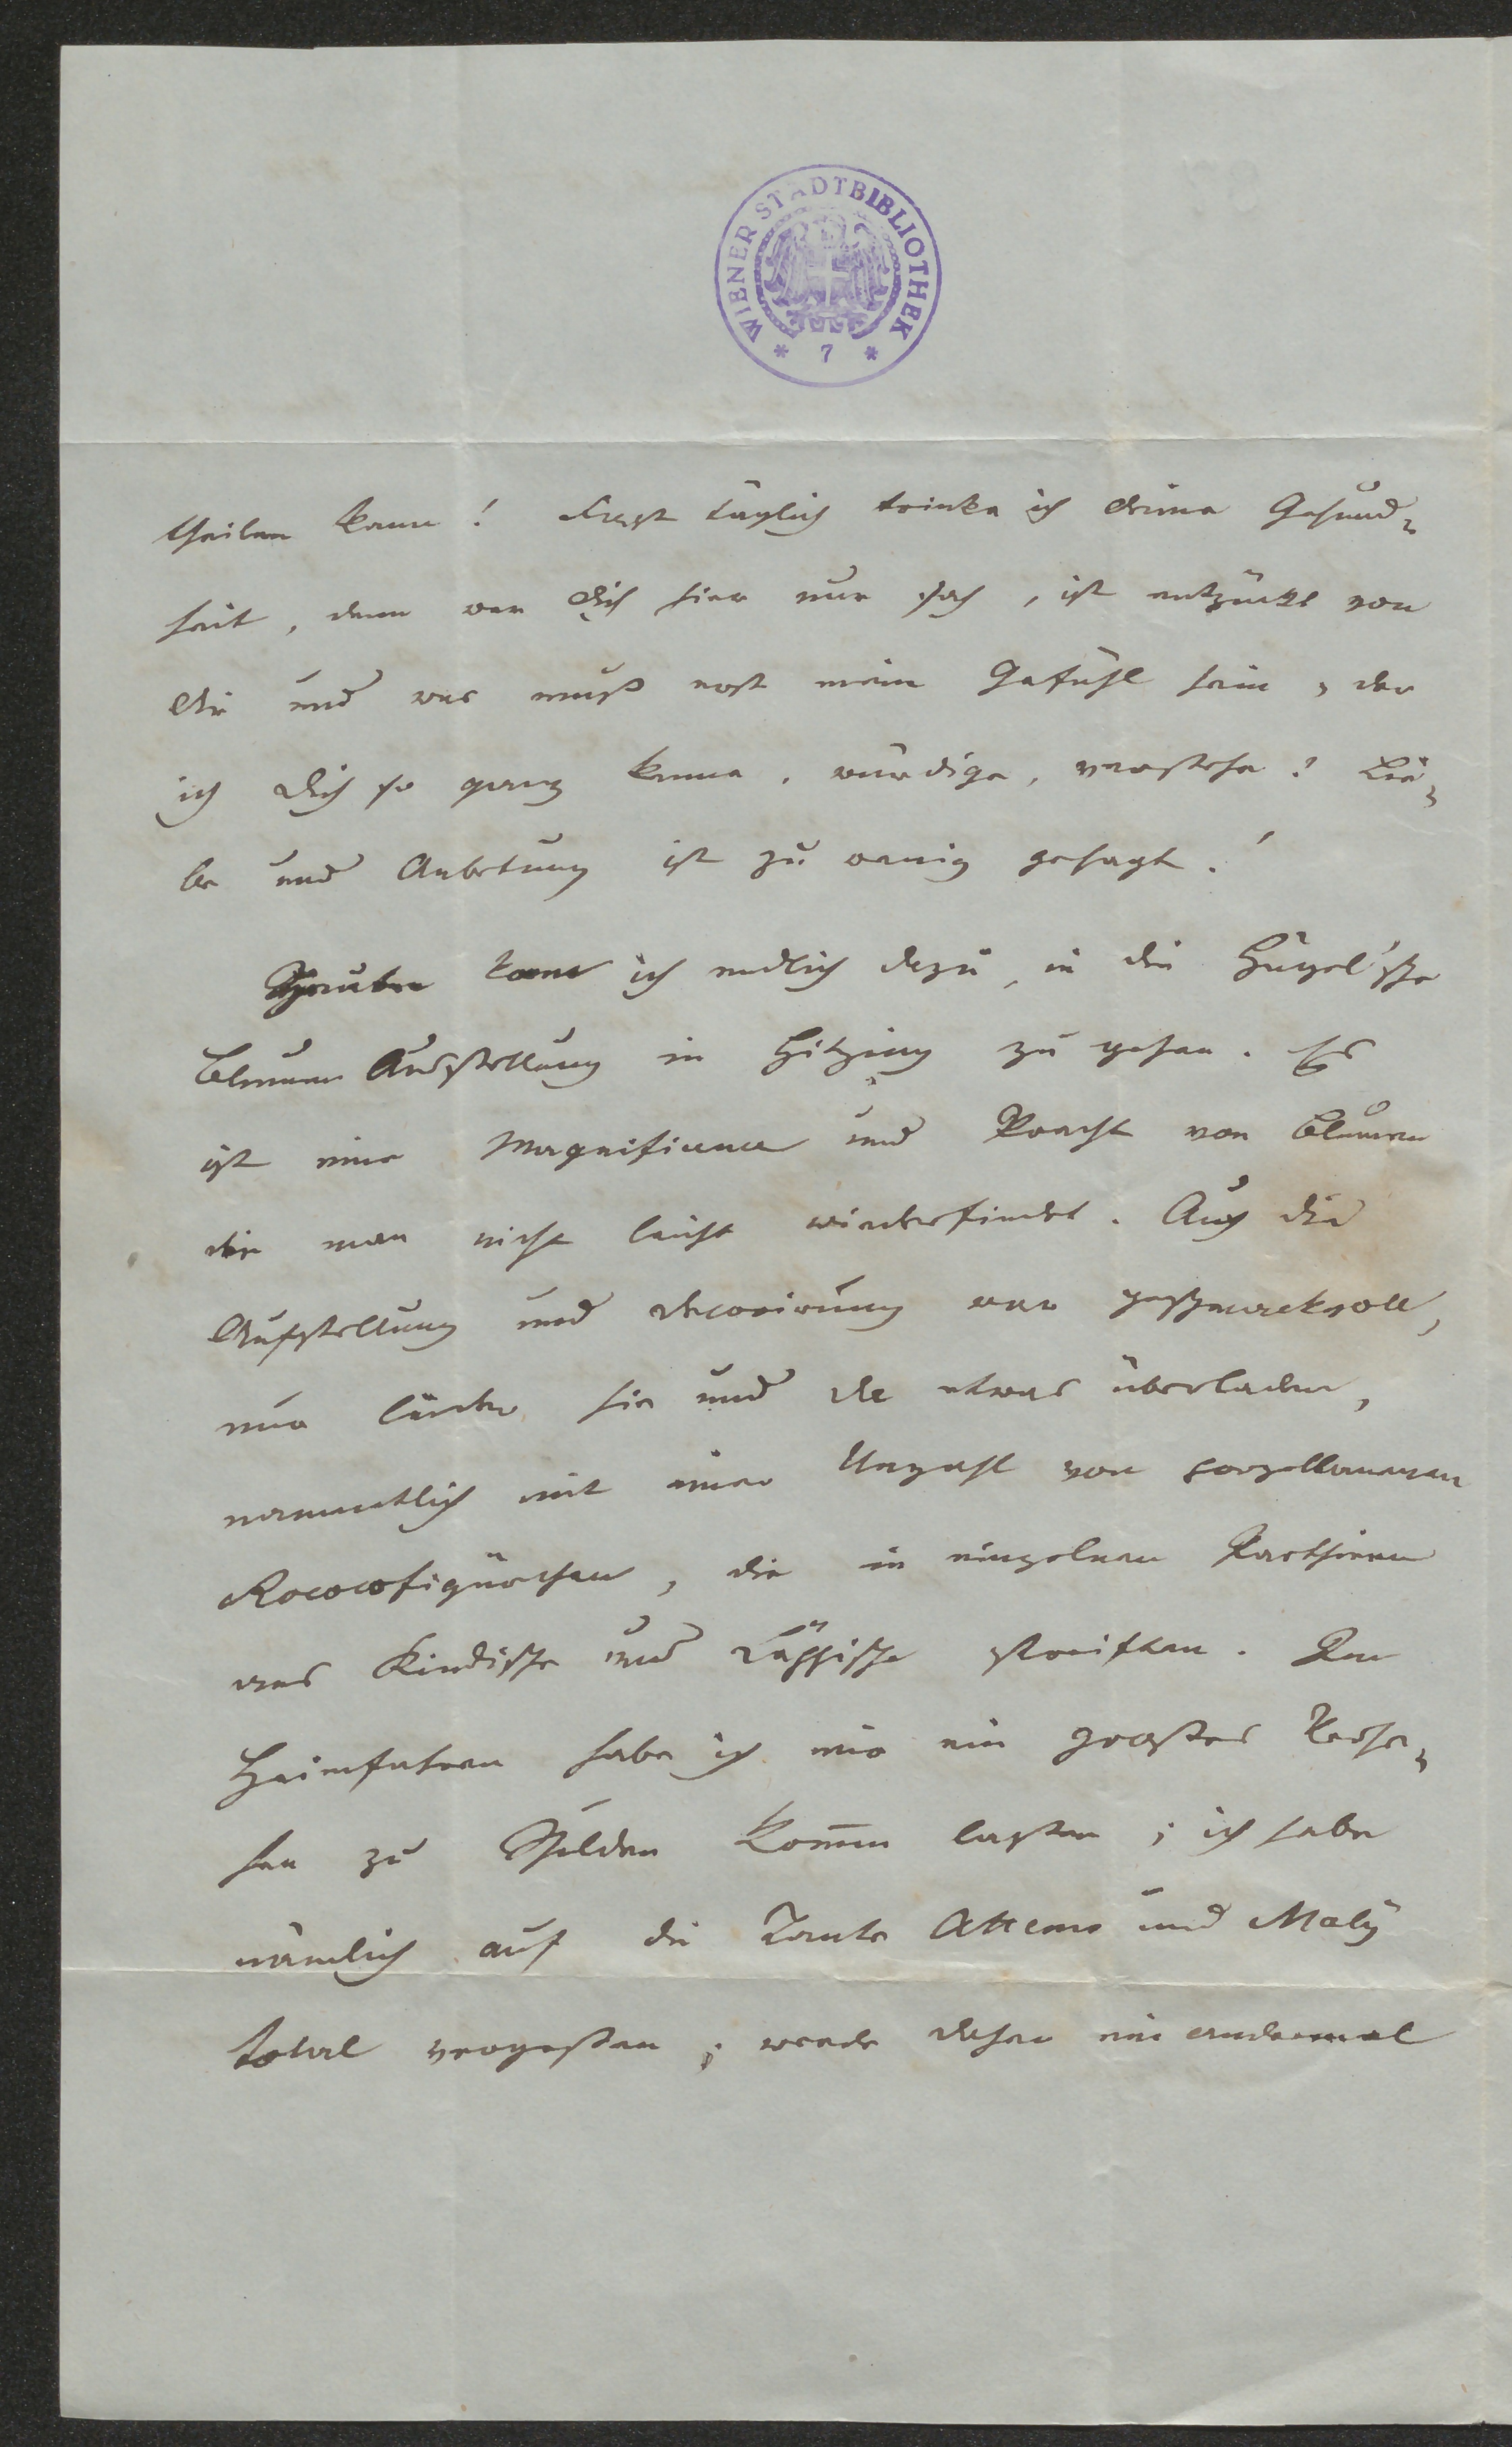 WIENER STADTBIBLIOTHEK
* 7 *
theilen kann! Fast täglich trinke ich deine Gesund-
heit, denn wer dich hier nur sah, ist entzückt von
dir und was muß erst mein Gefühl sein, der
ich dich so ganz kenne, würdige, verstehe! Lie-
be und Anbetung ist zu wenig gesagt!
Heute kam ich endlich dazu, in die Hügel'sche
Blumen Ausstellung in Hitzing zu gehen. Es
ist eine Magnificence und Pracht von Blumen
die man nicht leicht wiederfindet. Auch die
Aufstellung und Decorirung war geschmackvoll,
nur leider hie und da etwas überladen,
namentlich mit einer Unzahl von porzellanenen
Rococofigürchen, die in einzelnen Parthieen
ans Kindische und Läppische streiften. Im
Heimfahren habe ich mir ein großes Verse-
hen zu Schulden kommen lassen; ich habe
nämlich auf die Tante Attems und Maly
total vergessen; werde daher ein andermal